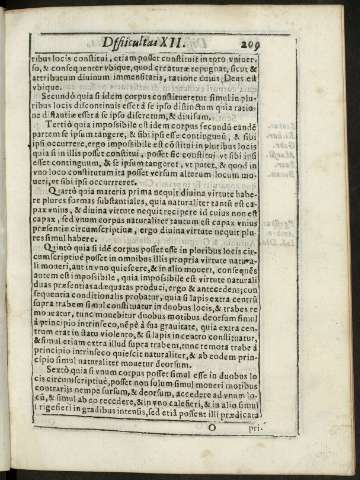 Difficultas XII. 209
tribus locis constitui, etiam posset constitui in toto vniver-
so, & consequenter vbique, quod creaturæ repugnat, sicut &
attributum diuinum immensitatis, ratione cuius, Deus est
vbique.
Secundò quia si idem corpus constitueretur simul in plu-
ribus locis discontinuis esset à se ipso distinctum quia ratio-
ne distantiæ esset à se ipso discretum, & diuisam.
Tertiò quia impossibile est idem corpus secundũ eandẽ
partem se ipsum tangere, & sibi ipsi esse continguum, & sibi
ipsi occurrere, ergo impossibile est cõstitui in pluribus locis
quia si in illis posset constitui, posset sic constitui vt sibi ipsi
esset continguum, & se ipsum tangeret, vt patet, & quod in
vno loco constitutum ita posset versum alterum locum mo-
ueri, vt sibi ipsi occurreret.
Quartò quia materia prima nequit diuina virtute habe-
re plures formas substantiales, quia naturaliter tantũ est ca-
pax vnius, & diuina virtute nequit recipere id cuius non est
capax, sed vnum corpus naturaliter tantum est capax vnius
præsentiæ circumscriptiuæ, ergo diuina virtute nequit plu-
res simul habere.
Quintò quia si idẽ corpus posset esse in pluribus locis cir-
cumscriptiuè posset in omnibus illis propria virtute natura-
li moueri, aut in vno quiescere, & in alio moueri, consequẽs
autem est impossibile, quia impossibile est virtute naturali
duas præsentias adæquatas produci, ergo & antecedens; con
sequentia conditionalis probatur, quia si lapis extra centrũ
supra trabem simul constituatur in duobus locis, & trabes re
moueatur, tunc mouebitur duobus motibus deorsum simul
à principio intrinseco, nẽpè à sua grauitate, quia extra cen-
trum erat in statu violento, & si lapis in centro constituatur,
& simul etiam extra illud supra trabem, tunc remota trabe à
principio intrinseco quiescit naturaliter, & ab eodem prin-
cipio simul naturaliter mouetur deorsum.
Sextò quia si vnum corpus posset simul esse in duobus lo
cis circumscriptiuè, posset non solum simul moueri motibus
contrarijs nempe sursum, & deorsum, accedere ad vnum lo-
cũ, & simul ab eo recedere, & in vno calefieri, & in alio simul
frigefieri in gradibus intensis, sed etiã possent illi prædicata
O pri-